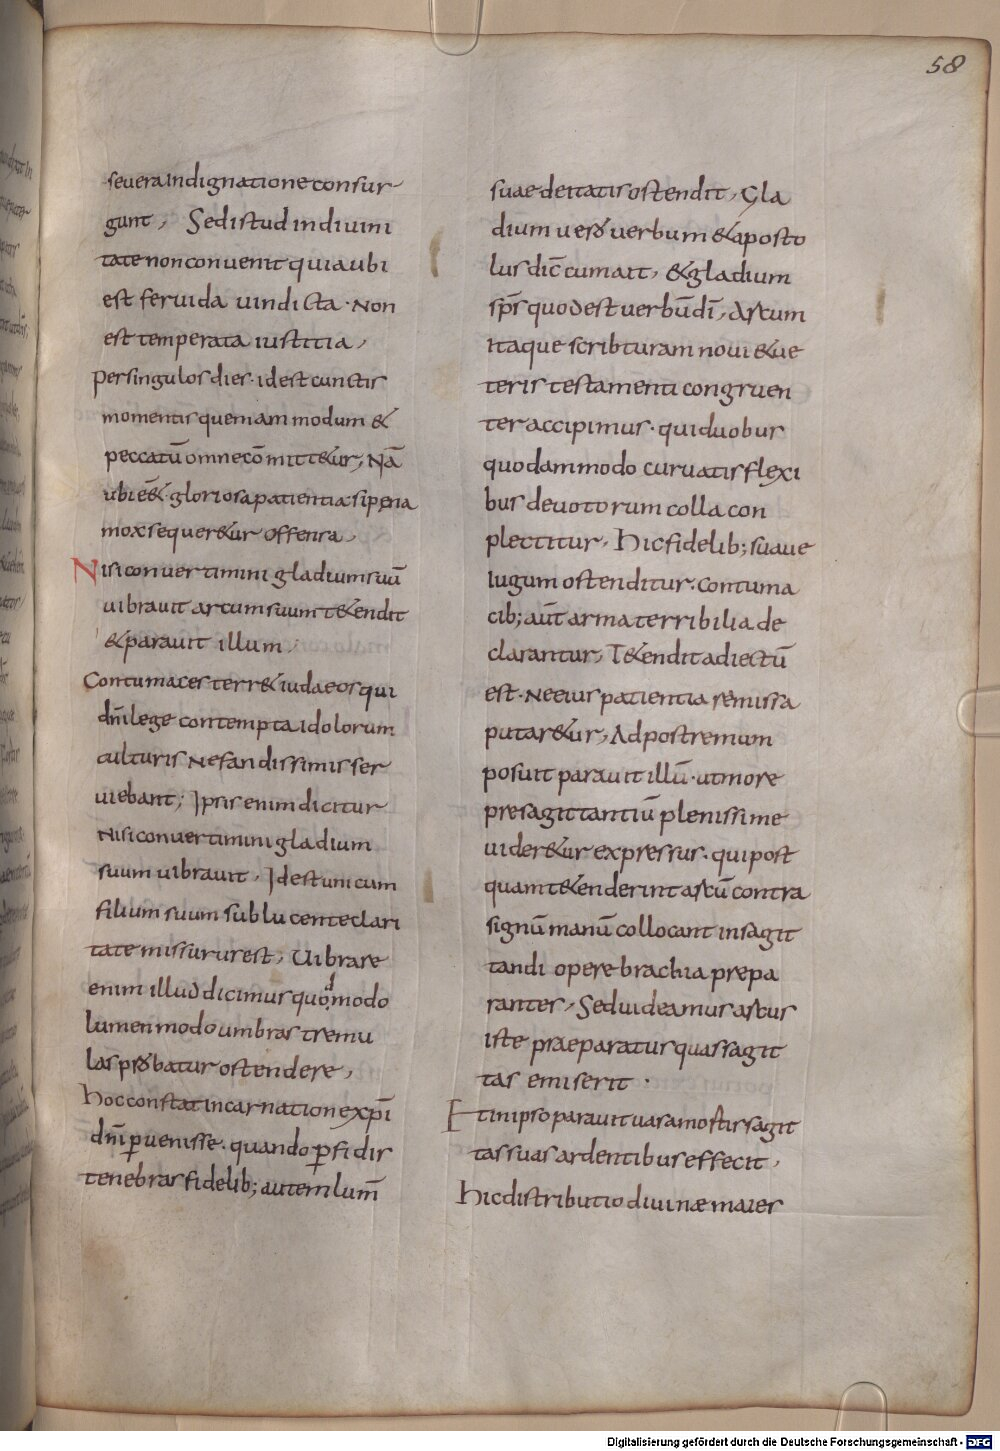 58
seuera indignatione consur
gunt, Sed istud in diuini
tate non conuenit quia ubi
est feruida uindicta. Non
est temperata iustitia,
Per singulos dies. id est cunctis
momentis quemammodum &
peccatū omne cōmitt&ur, Nā
ubi ē& gloriosa patientia si pena
mox sequer&ur offensa,
Nisi conuertimini gladium suū
uibrauit arcum suum t&endit
& parauit illum.
Contumaces terr& iudaeos qui
dn̄i lege contempta idolorum
culturis nefandissimis ser
uiebant; Ipsis enim dicitur
Nisi conuertimini gladium
suum uibrauit. Id est unicum
filium suum sub lucente clari
tate missurus est, Uibrare
enim illud dicimus quōmodo
lumen modo umbras tremu
las probatur ostendere,
hoc constat incarnatione xp̄i
dn̄i ꝑuenisse. quando ꝑfidis
tenebras fidelib; autem lum̄
suae deitatis ostendit, Gla
dium uero uerbum & aposto
lus dic̄ cum ait, & gladium
sp̄s quod est uerbū dī, Arcum
itaque scribturam noui & ue
teris testamenti congruen
ter accipimus. qui duobus
quodammodo curuatis flexi
bus deuotorum colla con
plectitur. hic fidelib; suaue
iugum ostenditur. contuma
cib; aūt arma terribilia de
clarantur, T&endit adiectū
est. Ne eius patientia remissa
putar&ur, Ad postremum
posuit parauit illū. ut more
presagittantiū plenissime
uider&ur expressus. qui post
quam t&enderint arcū contra
signū manū collocant in sagit
tandi opere brachia prepa
rantes, Sed uideamus arcus
iste praeparatus quas sagit
tas emiserit.
Et in ipso parauit uasa mortis sagit
tas suas ardentibus effecit,
hic distributio diuinæ maies
Digitalisierung gefördert durch die Deutsche Forschungsgemeinschaft - DFG